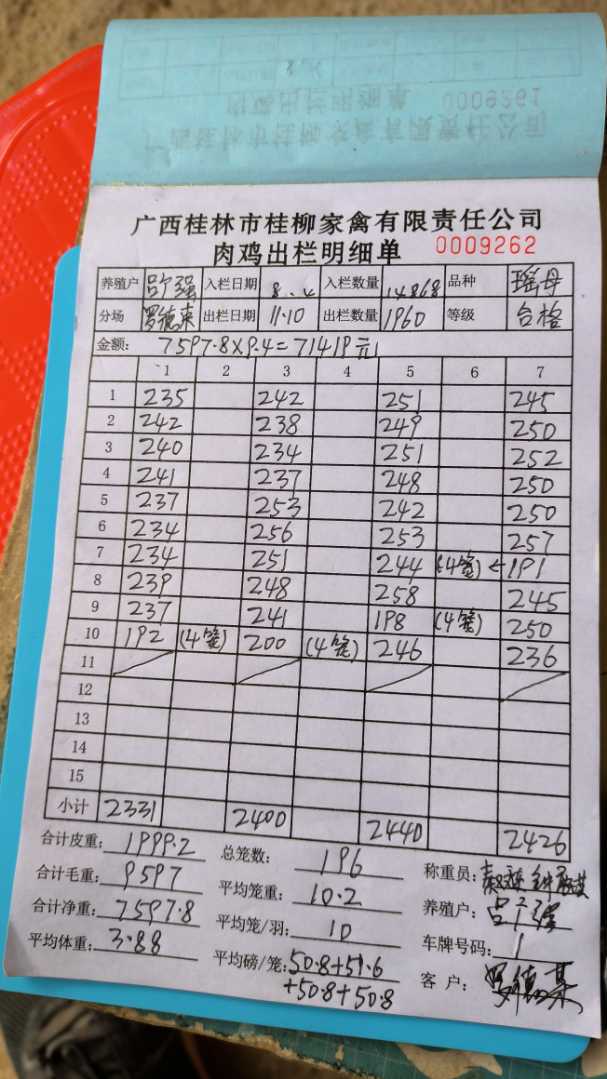 肉鸡出栏明细单 0009261
广西桂林市桂柳家禽有限责任公司
广西桂林市桂柳家禽有限责任公司
肉鸡出栏明细单 0009262
养殖户 吕强 入栏日期 8.4 入栏数量 14868 品种 瑶母
分场 罗德来 出栏日期 11.10 出栏数量 1960 等级 合格
金额: 7597.8×9.4=71419元
1 2 3 4 5 6 7
1 235 242 251 245
2 242 238 249 250
3 240 234 251 252
4 241 237 248 250
5 237 253 242 250
6 234 256 253 257
7 234 251 244 (4笼)← 191
8 239 248 258 245
9 237 241 198 (4笼) 250
10 192 (4笼) 200 (4笼) 246 236
11
12
13
14
15
小计 2331 2400 2440 2426
合计皮重: 1999.2 总笼数: 196 称重员:
合计毛重: 9597 平均笼重: 10.2 养殖户:
合计净重: 7597.8 平均笼/羽: 10 车牌号码: 1
平均体重: 3.88 平均磅/笼: 50.8+51.6 客户:
+50.8+50.8